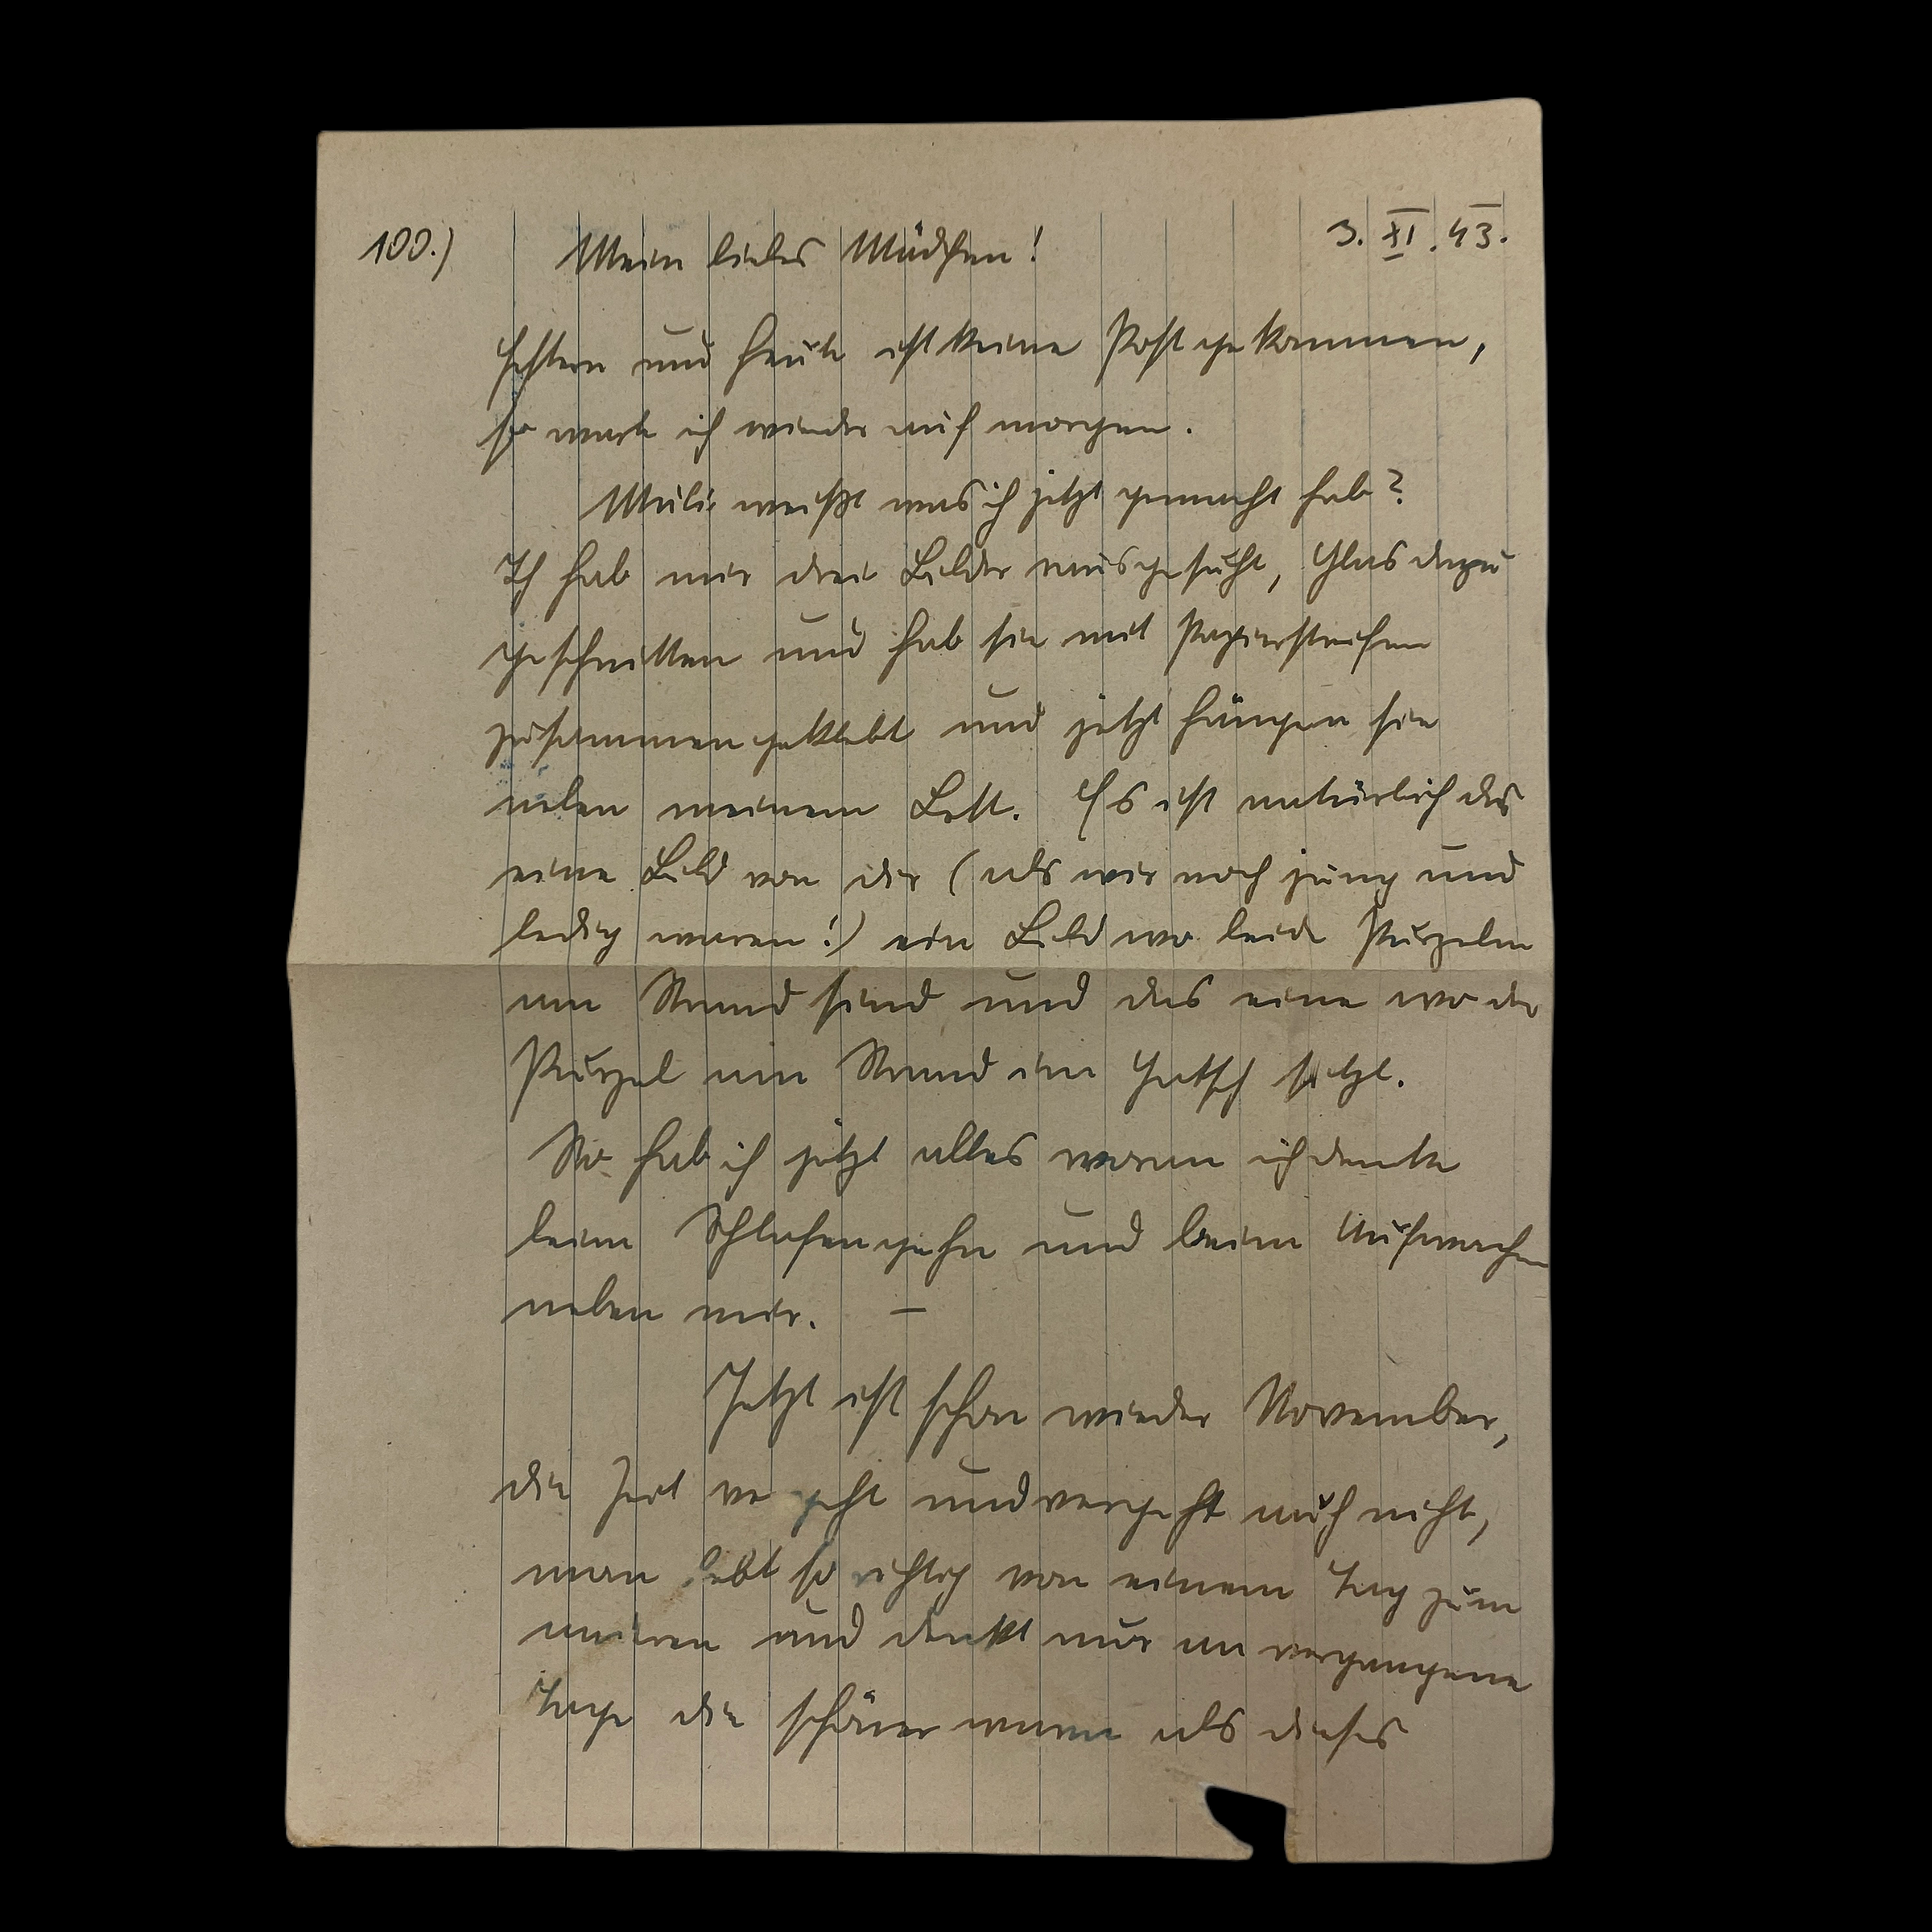 100.) Mein liebes Mädchen! 3. XI. 43.
Gestern und heute ist keine Post gekommen,
so warte ich wieder auf morgen.
Mulli weißt was ich jetzt gemacht hab?
Ich hab mir drei Bilder rausgesucht, Glas dazu
geschnitten und hab sie mit Papierstreifen
zusammengeklebt und jetzt hängen sie
neben meinem Bett. Es ist natürlich das
eine Bild von dir (als wir noch jung und
ledig waren!) ein Bild wo beide Purzeln
am Strand sind und das eine wo der
Purzel am Strand im Gatsch sitzt.
So hab ich jetzt alles woran ich denke
beim Schlafengehn und beim Aufwachen
neben mir. —
Jetzt ist schon wieder November,
die Zeit vergeht und vergeht auch nicht,
man lebt so richtig von einem Tag zum
anderen und denkt nur an vergangene
Tage die schöner waren als dieses